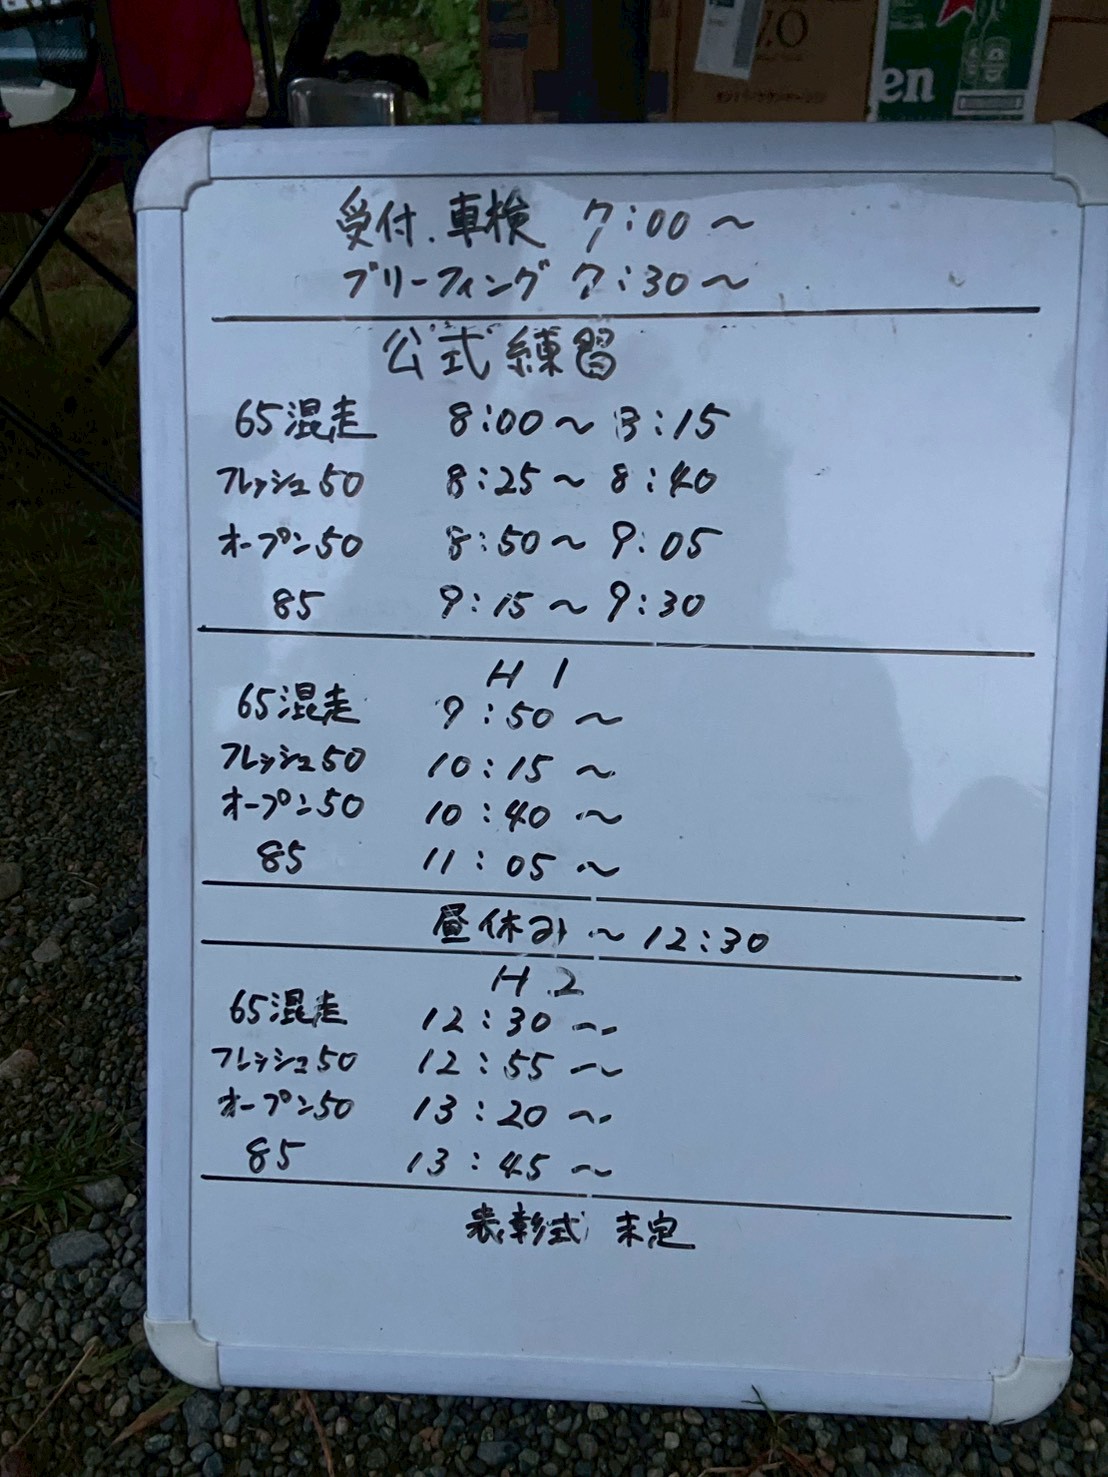 .O
en
受付.車検 7:00～
ブリーフィング 7:30～
公式練習
65混走 8:00～8:15
フレッシュ50 8:25～8:40
オープン50 8:50～9:05
85 9:15～9:30
H1
65混走 9:50～
フレッシュ50 10:15～
オープン50 10:40～
85 11:05～
昼休み～12:30
H2
65混走 12:30～
フレッシュ50 12:55～
オープン50 13:20～
85 13:45～
表彰式 未定